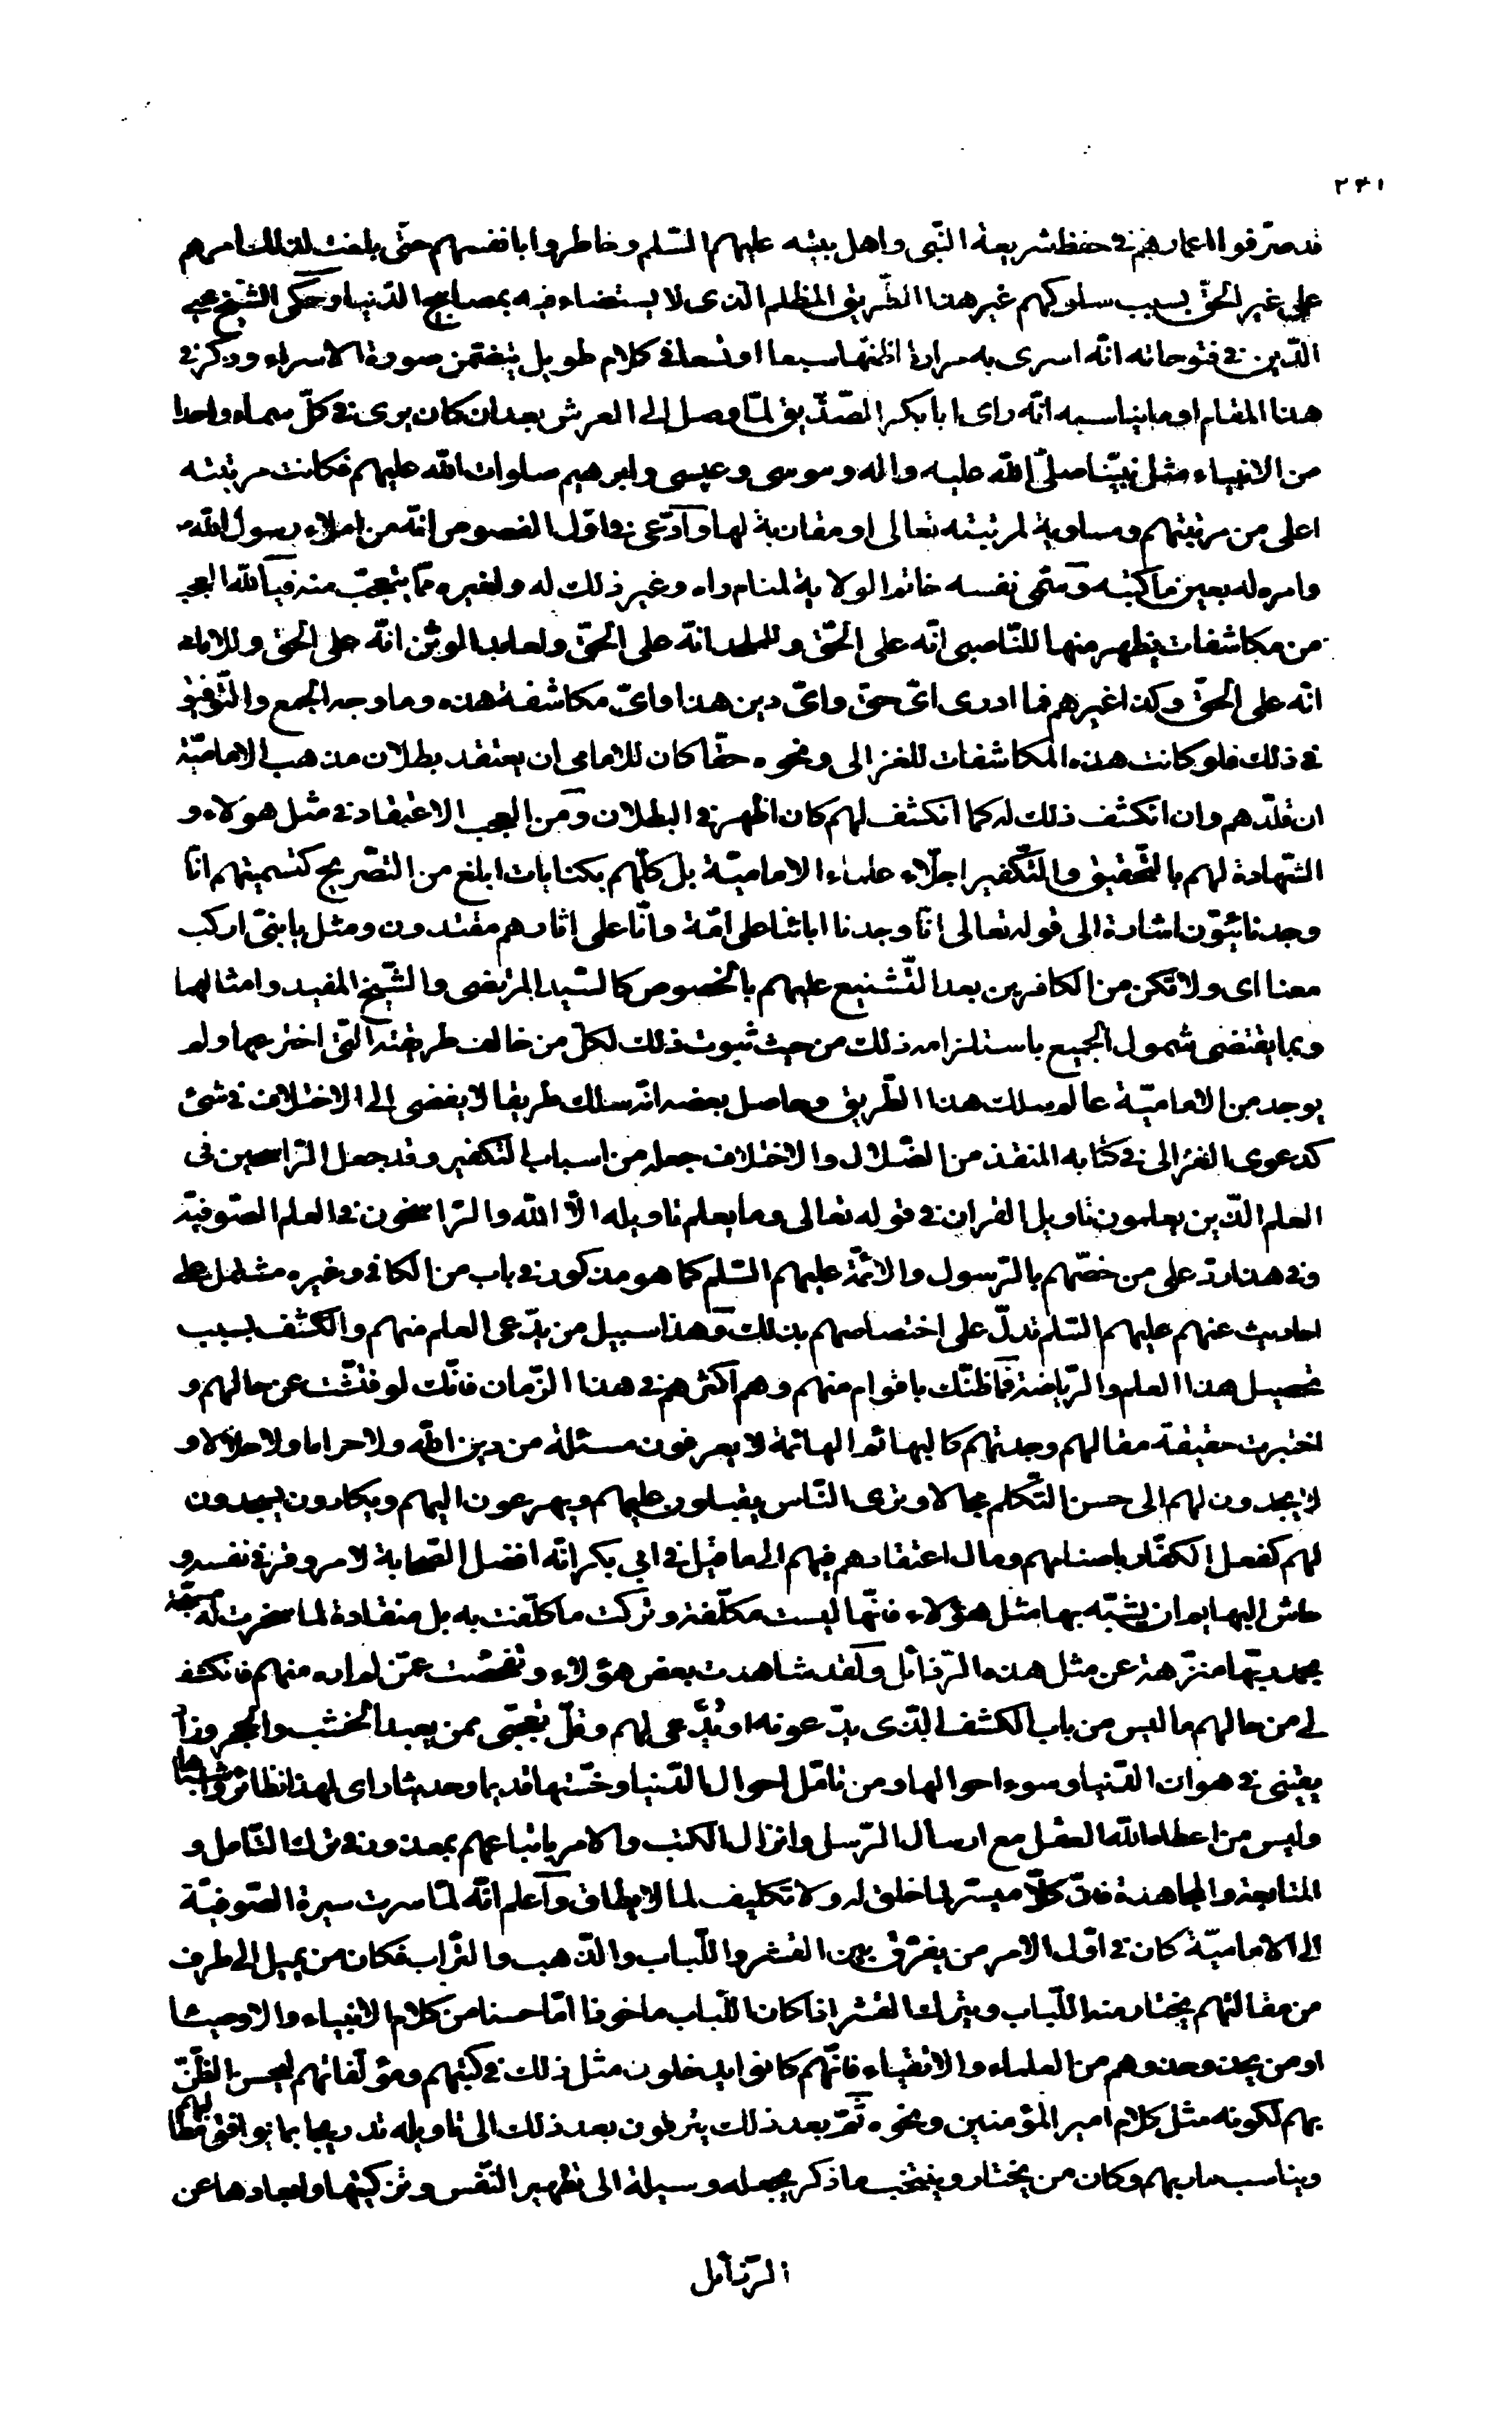 ٢٤١
قد صرّفوا اعمارهم في حفظ شريعة النّبى واهل بيته عليهم السّلم وخاطروا بانفسهم حتّى بلغت لذلك امرهم
على غير الحقّ بسبب سلوكهم غير هذا الطّريق المظلم الّذى لا يستضاء فيه بمصابيح الدّنيا وحكى الشّيخ محيى
الدّين في فتوحاته انّه اسرى به مرارة اظنّها سبعا او تسعا في كلام طويل يتضمّن صورة الاسراء وذكر في
هذا المقام او ما يناسبه انّه راى ابا بكر الصّدّيق لمّا وصل الى العرش بعد ان كان يرى في كلّ سماء واحدا
من الانبياء مثل نبيّنا صلّى اللّه عليه واله وموسى وعيسى وابرهيم صلوات اللّه عليهم فكانت مرتبته
اعلى من مرتبتهم ومساوية لمرتبته تعالى او مقاربة لها وادّعى في اوّل الفصوص انّه من املاء رسول اللّه ص
وامره له بعين ما كتبه وسمّى نفسه خاتم الولاية لمنام راه وغير ذلك له ولغيره ممّا يتعجّب منه فيا للّه العجب
من مكاشفات يظهر منها للنّاصبى انّه على الحقّ وللملحد انّه على الحقّ ولعابد الوثن انّه على الحق وللامامى
انّه على الحقّ وكذا غيرهم فما ادرى اىّ حق واىّ دين هذا واىّ مكاشفة هذه وما وجه الجمع والتّوفيق
في ذلك فلو كانت هذه المكاشفات للغزالى ونحوه حقّا كان للامامى ان يعتقد بطلان مذهب الاماميّة
ان قلّدهم وان انكشف ذلك له كما انكشف لهم كان اظهر في البطلان ومن العجب الاعتقاد في مثل هؤلاء و
الشّهادة لهم بالتّحقيق والتّكفير اجلّاء علماء الاماميّة بل كلّهم بكنايات ابلغ من التّصريح كتسميتهم انّا
وجدنائيّون اشارة الى قوله تعالى انّا وجدنا اباءنا على امّة وانّا على اثارهم مقتدون ومثل يا بنىّ اركب
معنا اى ولا تكن من الكافرين بعد التّشنيع عليهم بالخصوص كالسّيد المرتضى والشّيخ المفيد وامثالهما
وبما يقتضى شمول الجميع باستلزامه ذلك من حيث ثبوت ذلك لكلّ من خالف طريقته الّتى اخترعها ولم
يوجد من الاماميّة عالم سلك هذا الطّريق وحاصل بعضه انّه سلك طريقا لا يفضى الى الاختلاف في شئ
كدعوى الغزالى في كتابه المنقذ من الضّلال والاختلاف جعله من اسباب التكفير وقد جعل الرّاسخين فى
العلم الّذين يعلمون تاويل القران في قوله تعالى وما يعلم تاويله الّا اللّه والرّاسخون في العلم الصّوفيّة
وفي هذا ردّ على من خصّهم بالرّسول والائمّة عليهم السّلم كما هو مذكور في باب من الكافى وغيره مشتمل على
احاديث عنهم عليهم السّلم تدلّ على اختصاصهم بذلك وهذا سبيل من يدّعى العلم منهم والكشف بسبب
تحصيل هذا العلم والرّياضة فما ظنّك باقوام منهم وهم اكثرهم في هذا الزّمان فانّك لو فتّشت عن حالهم و
اختبرت حقيقة مقالهم وجدتهم كالبهائم الهائمة لا يعرفون مسئلة من دين اللّه ولا حراما ولا حلالا و
لا يجدون لهم الى حسن التّكلّم مجالا وترى النّاس يقبلون عليهم ويهرعون اليهم ويكادون يسجدون
لهم كفعل الكفّار باصنامهم ومال اعتقادهم فيهم الى ما قيل في ابي بكر انّه افضل الصّحابة لامر وقر في نفسه و
حاش البهايم ان يشبّه بها مثل هؤلاء فانّها ليست مكلّفة وتركت ما كلّفت به بل منقادة لما سخرت له مسبّحة
بحمد ربّها منزّهة عن مثل هذه الرّذائل ولقد شاهدت بعض هؤلاء وتفحّصت عمّن لم اره منهم فانكشف
لي من حالهم ما ليس من باب الكشف الّذى يدّعونه او يُدَّعى لهم وقلّ تعجّبى ممن يعبد الخشب والحجر وزاد
يقينى في هوان الدّنيا وسوء احوالها ومن تامّل احوال الدّنيا وخسّتها قديما وحديثا راى لهذا نظائر واشباها
وليس من اعطاه اللّه العقل مع ارسال الرّسل وانزال الكتب والامر باتباعهم بمعذور في ترك التّامل و
المتابعة والمجاهدة فانّ كلّا ميسّر لما خلق له ولا تكليف لما لا يطاق واعلم انّه لمّا سرت سيرة الصّوفيّة
الى الاماميّة كان في اوّل الامر من يفرّق بين القشر واللّباب والذّهب والتّراب فكان من يميل الى طرف
من مقالتهم يختار منه اللّباب ويترك القشر اذا كان اللّباب ماخوذا امّا حسنا من كلام الانبياء والاوصياء
او من يحذو حذوهم من العلماء والاتقياء فانّهم كانوا يدخلون مثل ذلك في كتبهم ومؤلّفاتهم ليحسن الظّنّ
بهم لكونه مثل كلام امير المؤمنين ونحوه ثمّ بعد ذلك يترقون بعد ذلك الى تاويله تدريجا بما يوافق مطالبهم
ويناسب مابهم وكان من يختار وينتخب ما ذكر يجعله وسيلة الى تطهير النّفس وتزكيتها وابعادها عن
الرّذائل